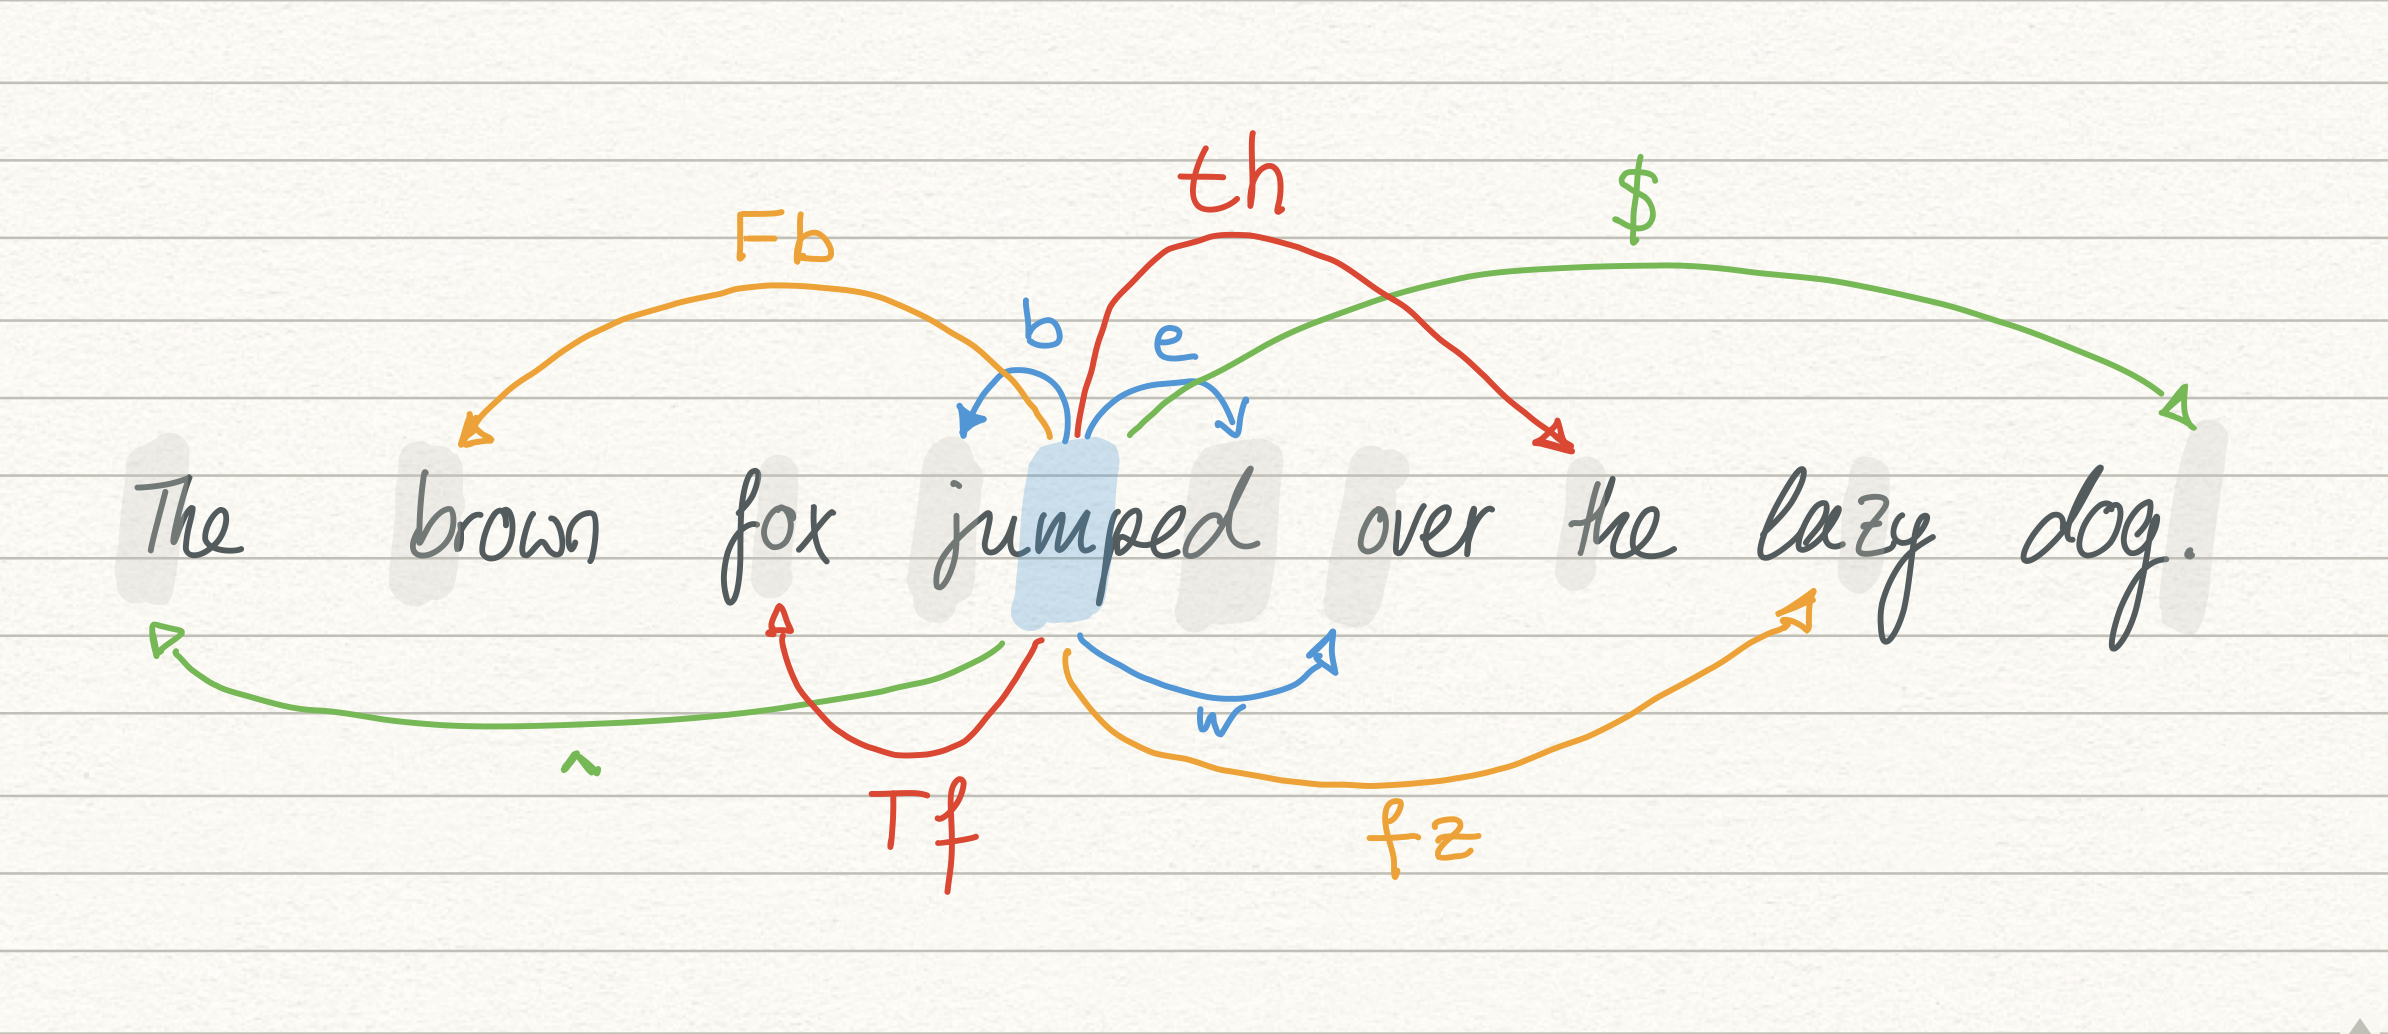 th
$
Fb
b
e
The brown fox jumped over the lazy dog.
w
^
Tf
fz